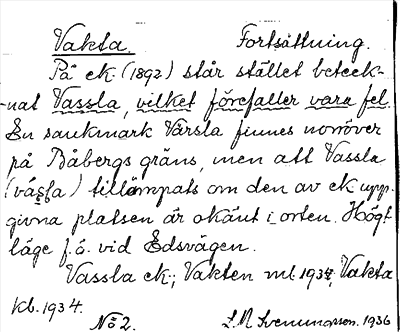 Vakta. Fortsättning.
På ek (1892) står stället beteck-
-nat Vassla, vilket förefaller vara fel.
En sankmark Vårsla finnes norröver
på Båbergs gräns, men att Vassla
(väsʃa) tillämpats om den av ek upp-
givna platsen är okänt i orten. Högt
läge f.ö. vid Edsvägen.
Vassla ek; Vakten ml 1934, Vakta
Kb. 1934.
No 2. L.M. Svenungsson. 1936